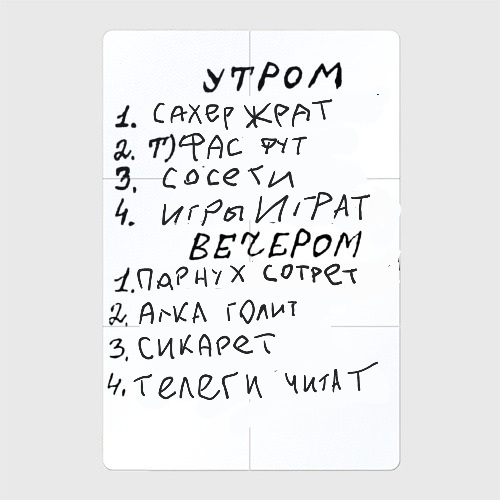 УТРОМ
1. САХЕР ЖРАТ
2. Т)ФАС ФУТ
3. СОСЕТИ
4. ИГРЫ ИГРАТ
ВЕЧЕРОМ
1. ПАРНУХ СОТРЕТ
2. АНКА ГОЛИТ
3. СИКАРЕТ
4. ТЕЛЕГИ ЧИТАТ